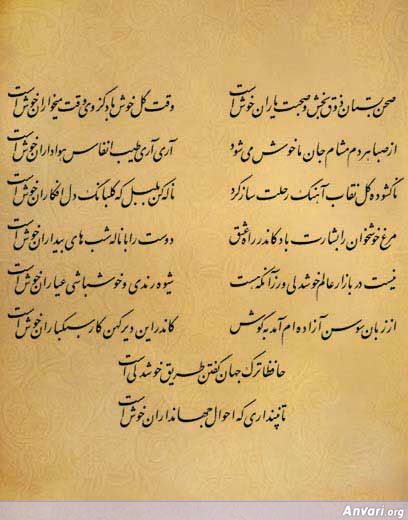 صحن بستان ذوق بخش و صحبت یاران خوش است    وقت گل خوش باد کز وی وقت میخواران خوش است
از صبا هر دم مشام جان ما خوش می‌شود    آری آری طیب انفاس هواداران خوش است
ناگشوده گل نقاب آهنگ رحلت ساز کرد    ناله کن بلبل که گلبانگ دل افکاران خوش است
مرغ خوشخوان را بشارت باد کاندر راه عشق    دوست را با ناله شب‌های بیداران خوش است
نیست در بازار عالم خوشدلی ور زانکه هست    شیوه رندی و خوش باشی عیاران خوش است
از زبان سوسن آزاده‌ام آمد به گوش    کاندر این دیر کهن کار سبکباران خوش است
حافظا ترک جهان گفتن طریق خوشدلی است
تا نپنداری که احوال جهانداران خوش است
Anvari.org